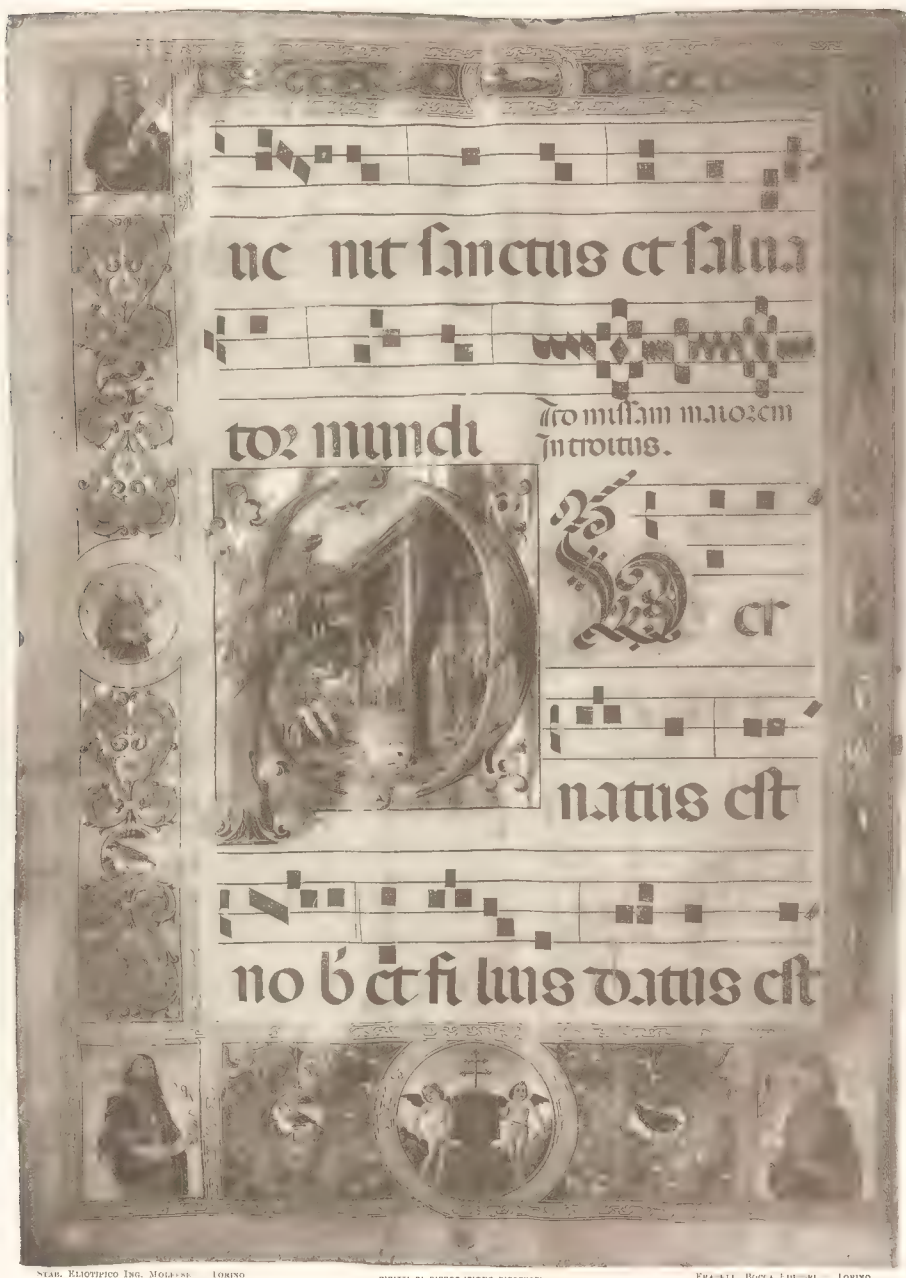 ue nit sanctus et salua
tor mundi
Ad missam maiorem
Introitus.
P
er
natus est
no b' et fi lius datus est
STAB. ELIOTIPICO ING. MOLFESE TORINO
TORINO